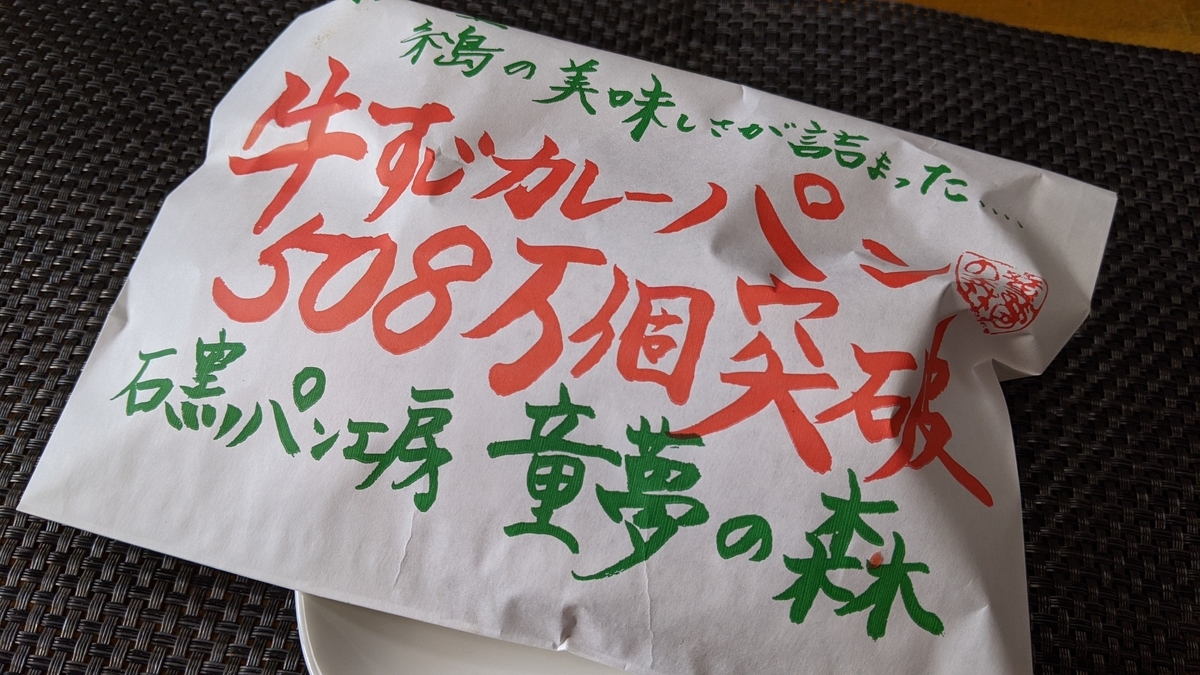 糸島の美味しさが詰まった....
牛すじカレーパン
508万個突破
石黒パン工房 童夢の森